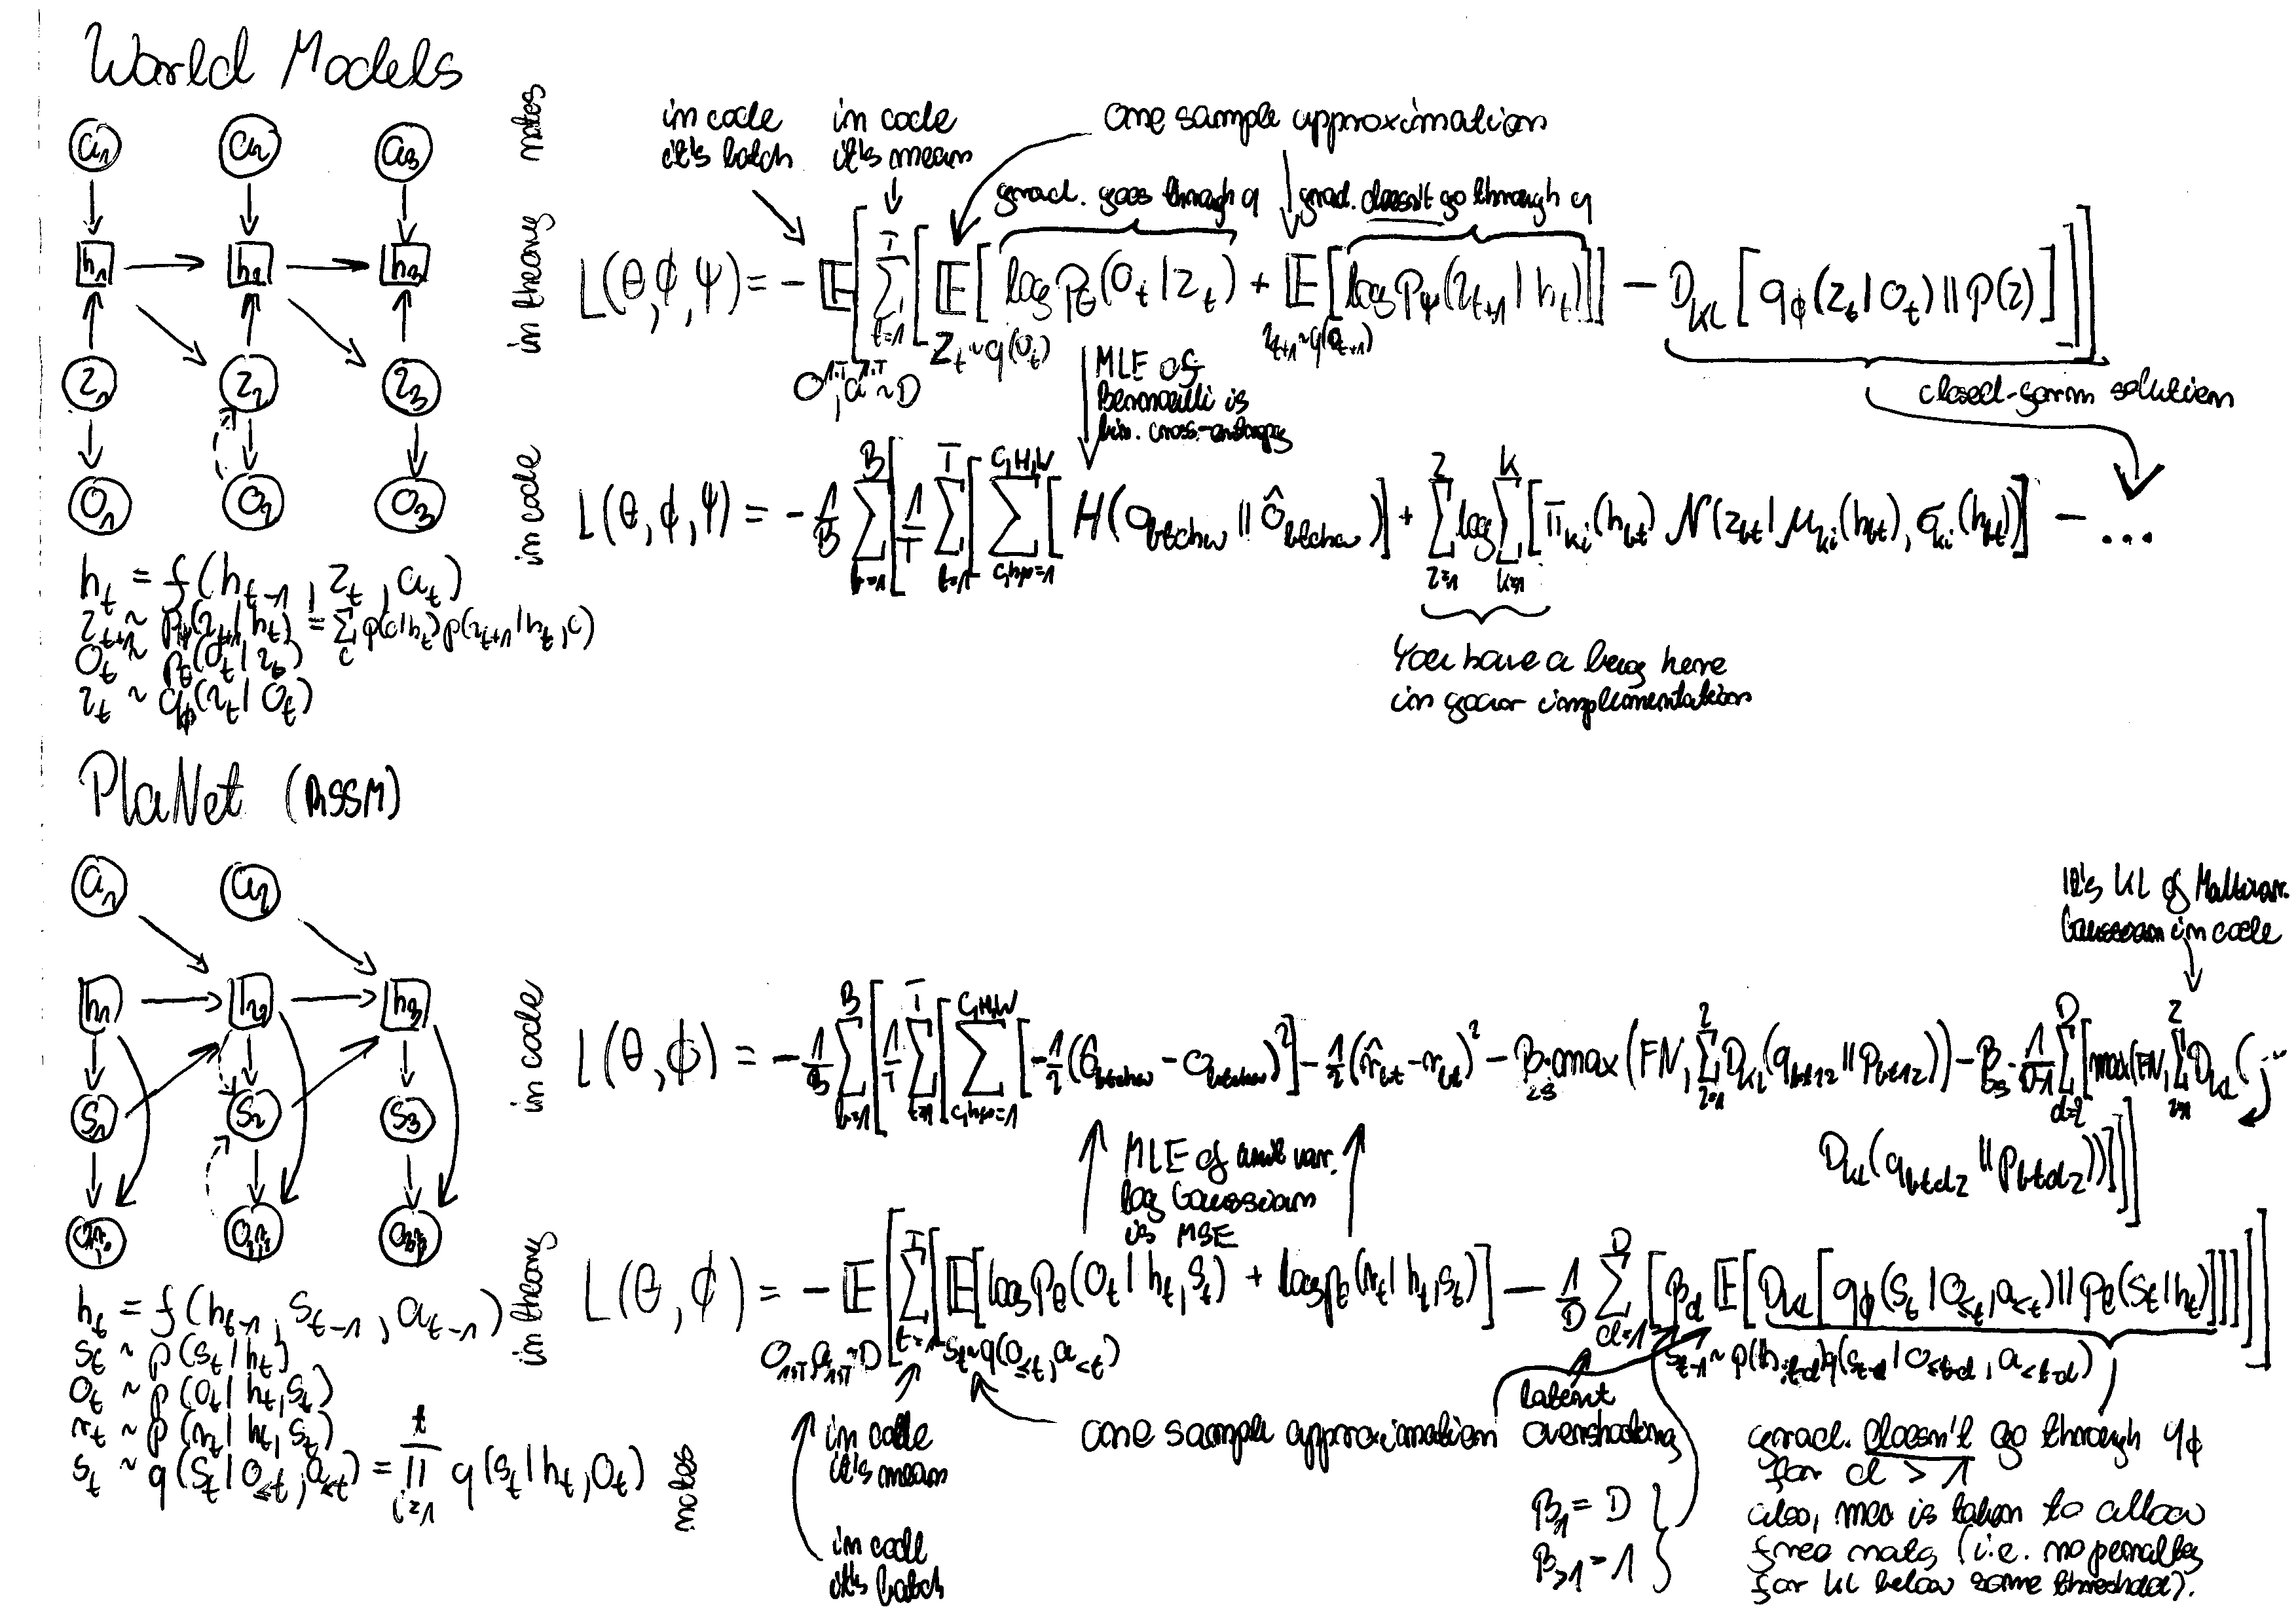 World Models
a₁ a₂ a₃
h₁ h₂ h₃
z₁ z₂ z₃
o₁ o₂ o₃
h_t = f(h_{t-1}, z_t, a_t)
z_{t+1} ~ p_ψ(z_{t+1} | h_t) = Σ_c p(c|h_t) p(z_{t+1} | h_t, c)
o_t ~ p_θ(o_t | z_t)
z_t ~ q_ϕ(z_t | o_t)
notes
in code
it's batch
in code
it's mean
one sample approximation
grad. goes through q
grad. doesn't go through q
in theory
L(θ,ϕ,ψ) = - 𝔼_{o^{1:T}, a^{1:T} ~ D} [ Σ_{t=1}^{T} [ 𝔼_{z_t ~ q(o_t)} [ log p_θ(o_t | z_t) + 𝔼_{z_{t+1} ~ q(o_{t+1})} [ log p_ψ(z_{t+1} | h_t) ] ] - D_{KL} [ q_ϕ(z_t | o_t) || p(z) ] ] ]
MLE of
Bernoulli is
bin. cross-entropy
closed-form solution
in code
L(θ,ϕ,ψ) = - 1/B Σ_{b=1}^{B} [ 1/T Σ_{t=1}^{T} [ Σ_{c,h,w=1}^{C,H,W} [ H(o_{btchw} || ô_{btchw}) ] + Σ_{z=1}^{Z} log Σ_{k=1}^{K} [ π_{ki}(h_{bt}) N(z_{bt} | μ_{ki}(h_{bt}), σ_{ki}(h_{bt})) ] - ...
You have a bug here
in your implementation
PlaNet (RSSM)
a₁ a₂
h₁ h₂ h₃
s₁ s₂ s₃
o₁r₁ o₂r₂ o₃r₃
h_t = f(h_{t-1}, s_{t-1}, a_{t-1})
s_t ~ p(s_t | h_t)
o_t ~ p(o_t | h_t, s_t)
r_t ~ p(r_t | h_t, s_t)
s_t ~ q(s_t | o_{≤t}, a_{<t}) = Π_{i=1}^{t} q(s_t | h_t, o_t)
It's KL of Multivar.
Gaussian in code
in code
L(θ,ϕ) = - 1/B Σ_{b=1}^{B} [ 1/T Σ_{t=1}^{T} [ Σ_{c,h,w=1}^{C,H,W} [ -1/2 (ô_{btchw} - o_{btchw})² ] - 1/2 (r̂_{bt} - r_{bt})² - β · max(FN, Σ_{z=1}^{Z} D_{KL}(q_{bt1z} || p_{bt1z})) - β · 1/(D-1) Σ_{d=2}^{D} [ max(FN, Σ_{z=1}^{Z} D_{KL}( ...
D_{KL}(q_{btdz} || p_{btdz})) ] ] ]
MLE of unit var.
log Gaussian
is MSE
in theory
L(θ,ϕ) = - 𝔼_{o_{1:T}, a_{1:T} ~ D} [ Σ_{t=1}^{T} [ 𝔼_{s_t ~ q(o_{≤t}, a_{<t})} [ log p_θ(o_t | h_t, s_t) + log p_θ(r_t | h_t, s_t) ] - 1/D Σ_{d=1}^{D} [ β_d 𝔼 [ D_{KL} [ q_ϕ(s_t | o_{≤t}, a_{<t}) || p_θ(s_t | h_t) ] ] ] ] ]
in code
it's mean
in code
it's batch
notes
one sample approximation
latent
overshooting
β₁ = D
β_{>1} = 1
grad. doesn't go through q_ϕ
for d > 1
also, max is taken to allow
free nats (i.e. no penalty
for KL below some threshold).